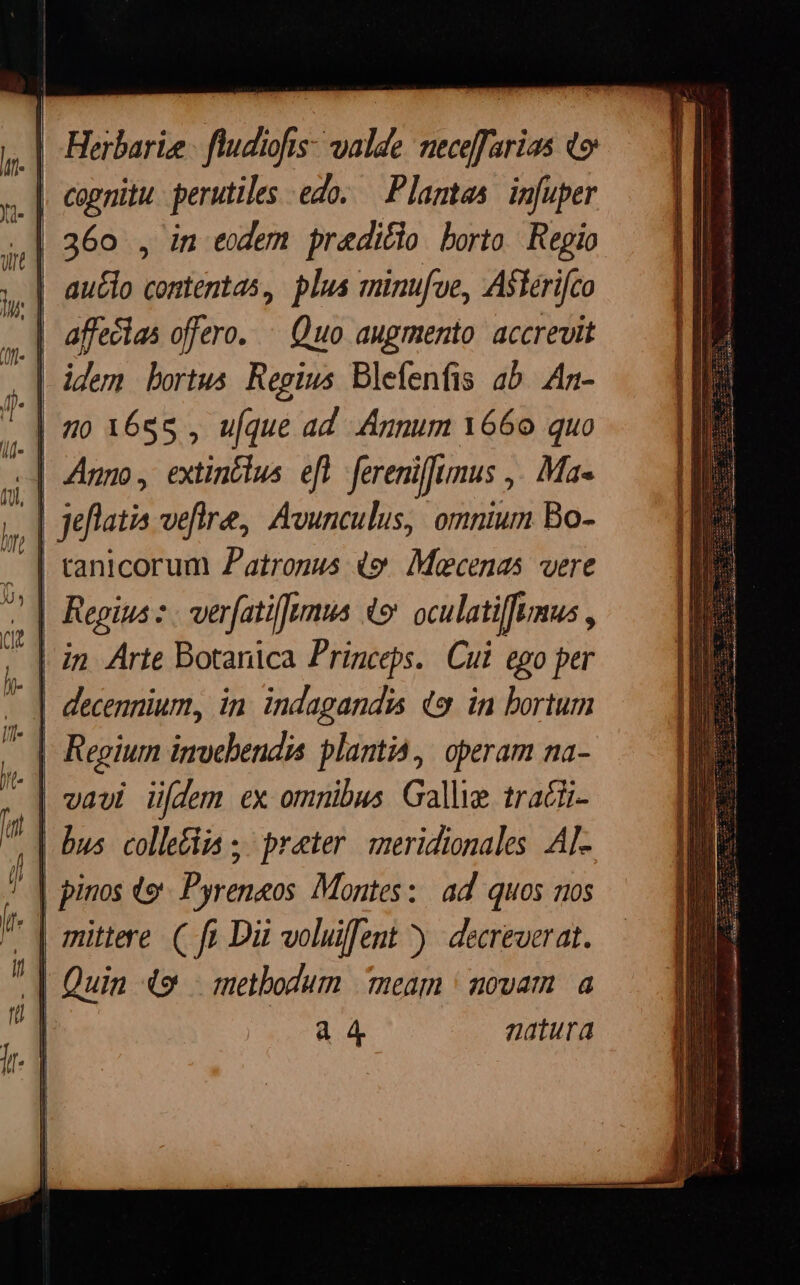 Herbariæ ſtudioſis valde neceſſarias &
cognitu perutiles edo. Plantas inſuper
360 , in eodem prædicto horto Regio
aucto contentas, plus minuſve, Aſteriſco
affectas offero. Quo augmento accrevit
idem hortus Regius Bleſenſis ab An-
no 1655 , uſque ad Annum 1660 quo
Anno, extinctus eſt ſereniſſimus , Ma-
jeſtatis veſtræ, Avunculus, omnium Bo-
tanicorum Patronus & Mæcenas vere
Regius : verſatiſſimus & oculatiſſimus ,
in Arte Botanica Princeps. Cui ego per
decennium, in indagandis & in hortum
Regium invehendis plantis, operam na-
vavi iiſdem ex omnibus Galliæ tracti-
bus collectis ; præter meridionales Al-
pinos & Pyrenæos Montes : ad quos nos
mittere ( ſi Dii voluiſſent ) decreverat.
Quin & methodum meam novam a
a 4 natura